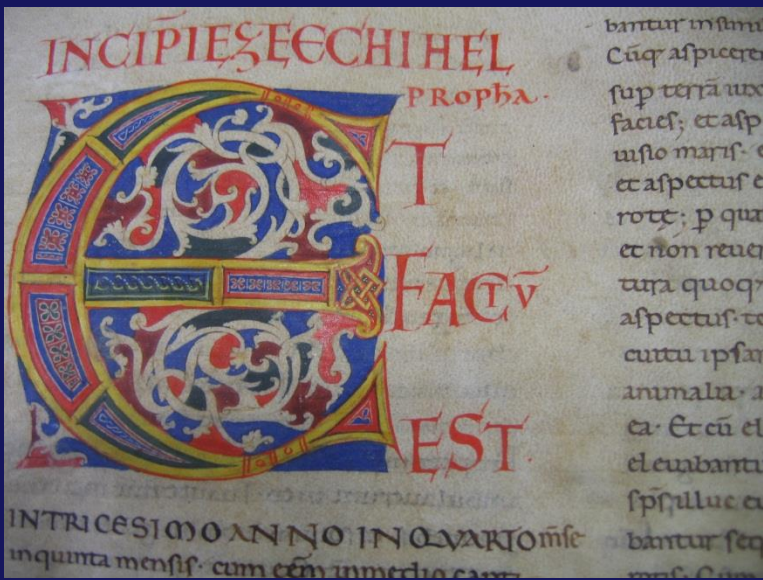 INCIPIT EZECHIHEL
PROPHA.
ET
FACTŪ
EST.
INTRICESIMO ANNO INQVARTO m̄se
inquinta mensis. cum eēm inmedio capti
bantur
Cūq aspicerem
sup terrā
facies; et asp
uisio maris.
et aspectus e
rotę; p qua
et non reuer
tura quoq
aspectus.
cuttu ipsar
animalia. a
ea. Et cū el
eleuabantu
sp̄s illuc eu
bantur seq